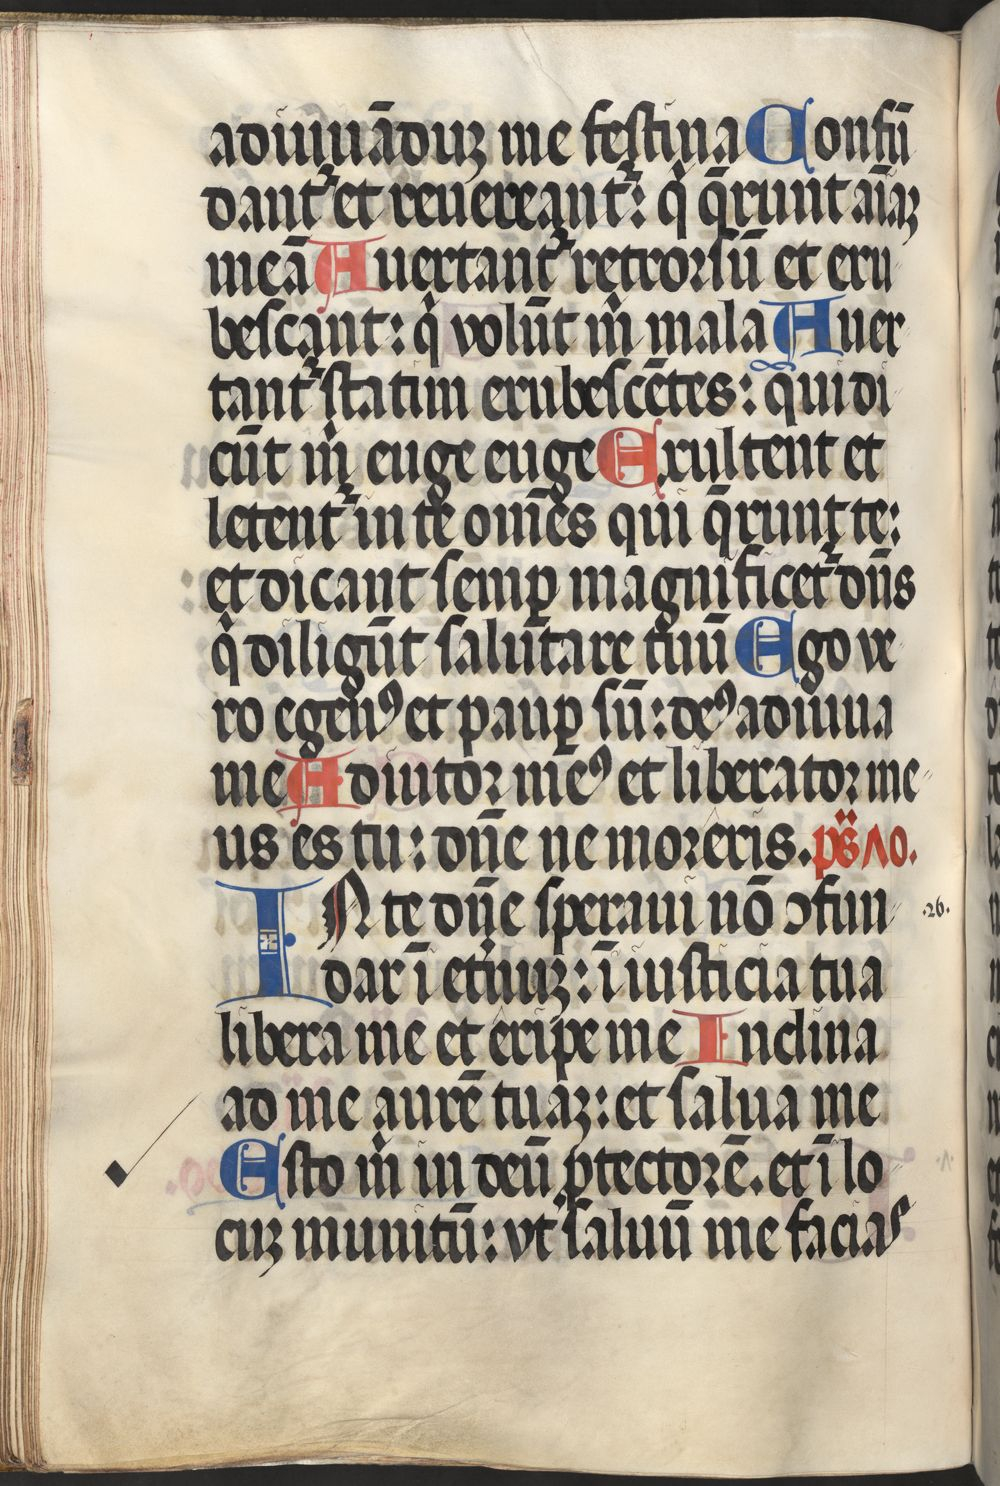 adiuuāduꝫ me festina Confū
dantᷣ et reuereantᷣ: qͥ q̄runt aīaꝫ
meā Auertantᷣ retrorsū et eru
bescant: qͥ volūt mͥ mala Auer
tantᷣ statim erubescētes: qui di
cūt mͥ euge euge Exultent et
letentᷣ in te om̄es qui q̄runt te:
et dicant semꝑ magnificetᷣ dn̄s
qͥ diligūt salutare tuū Ego ve
ro egenꝰ et pauꝑ sū: deꝰ adiuua
me Adiutor meꝰ et liberator me
us es tu: dn̄e ne moreris. ps̄ ɅO.
IN te dn̄e speraui nō ↄfun
dar ī etͬnuꝫ: ī iusticia tua
libera me et eripe me Inclina
ad me aurē tuaꝫ: et salua me
Esto mͥ in deū ꝓtectorē. et ī lo
cuꝫ munitū: vt saluū me facias
.26.